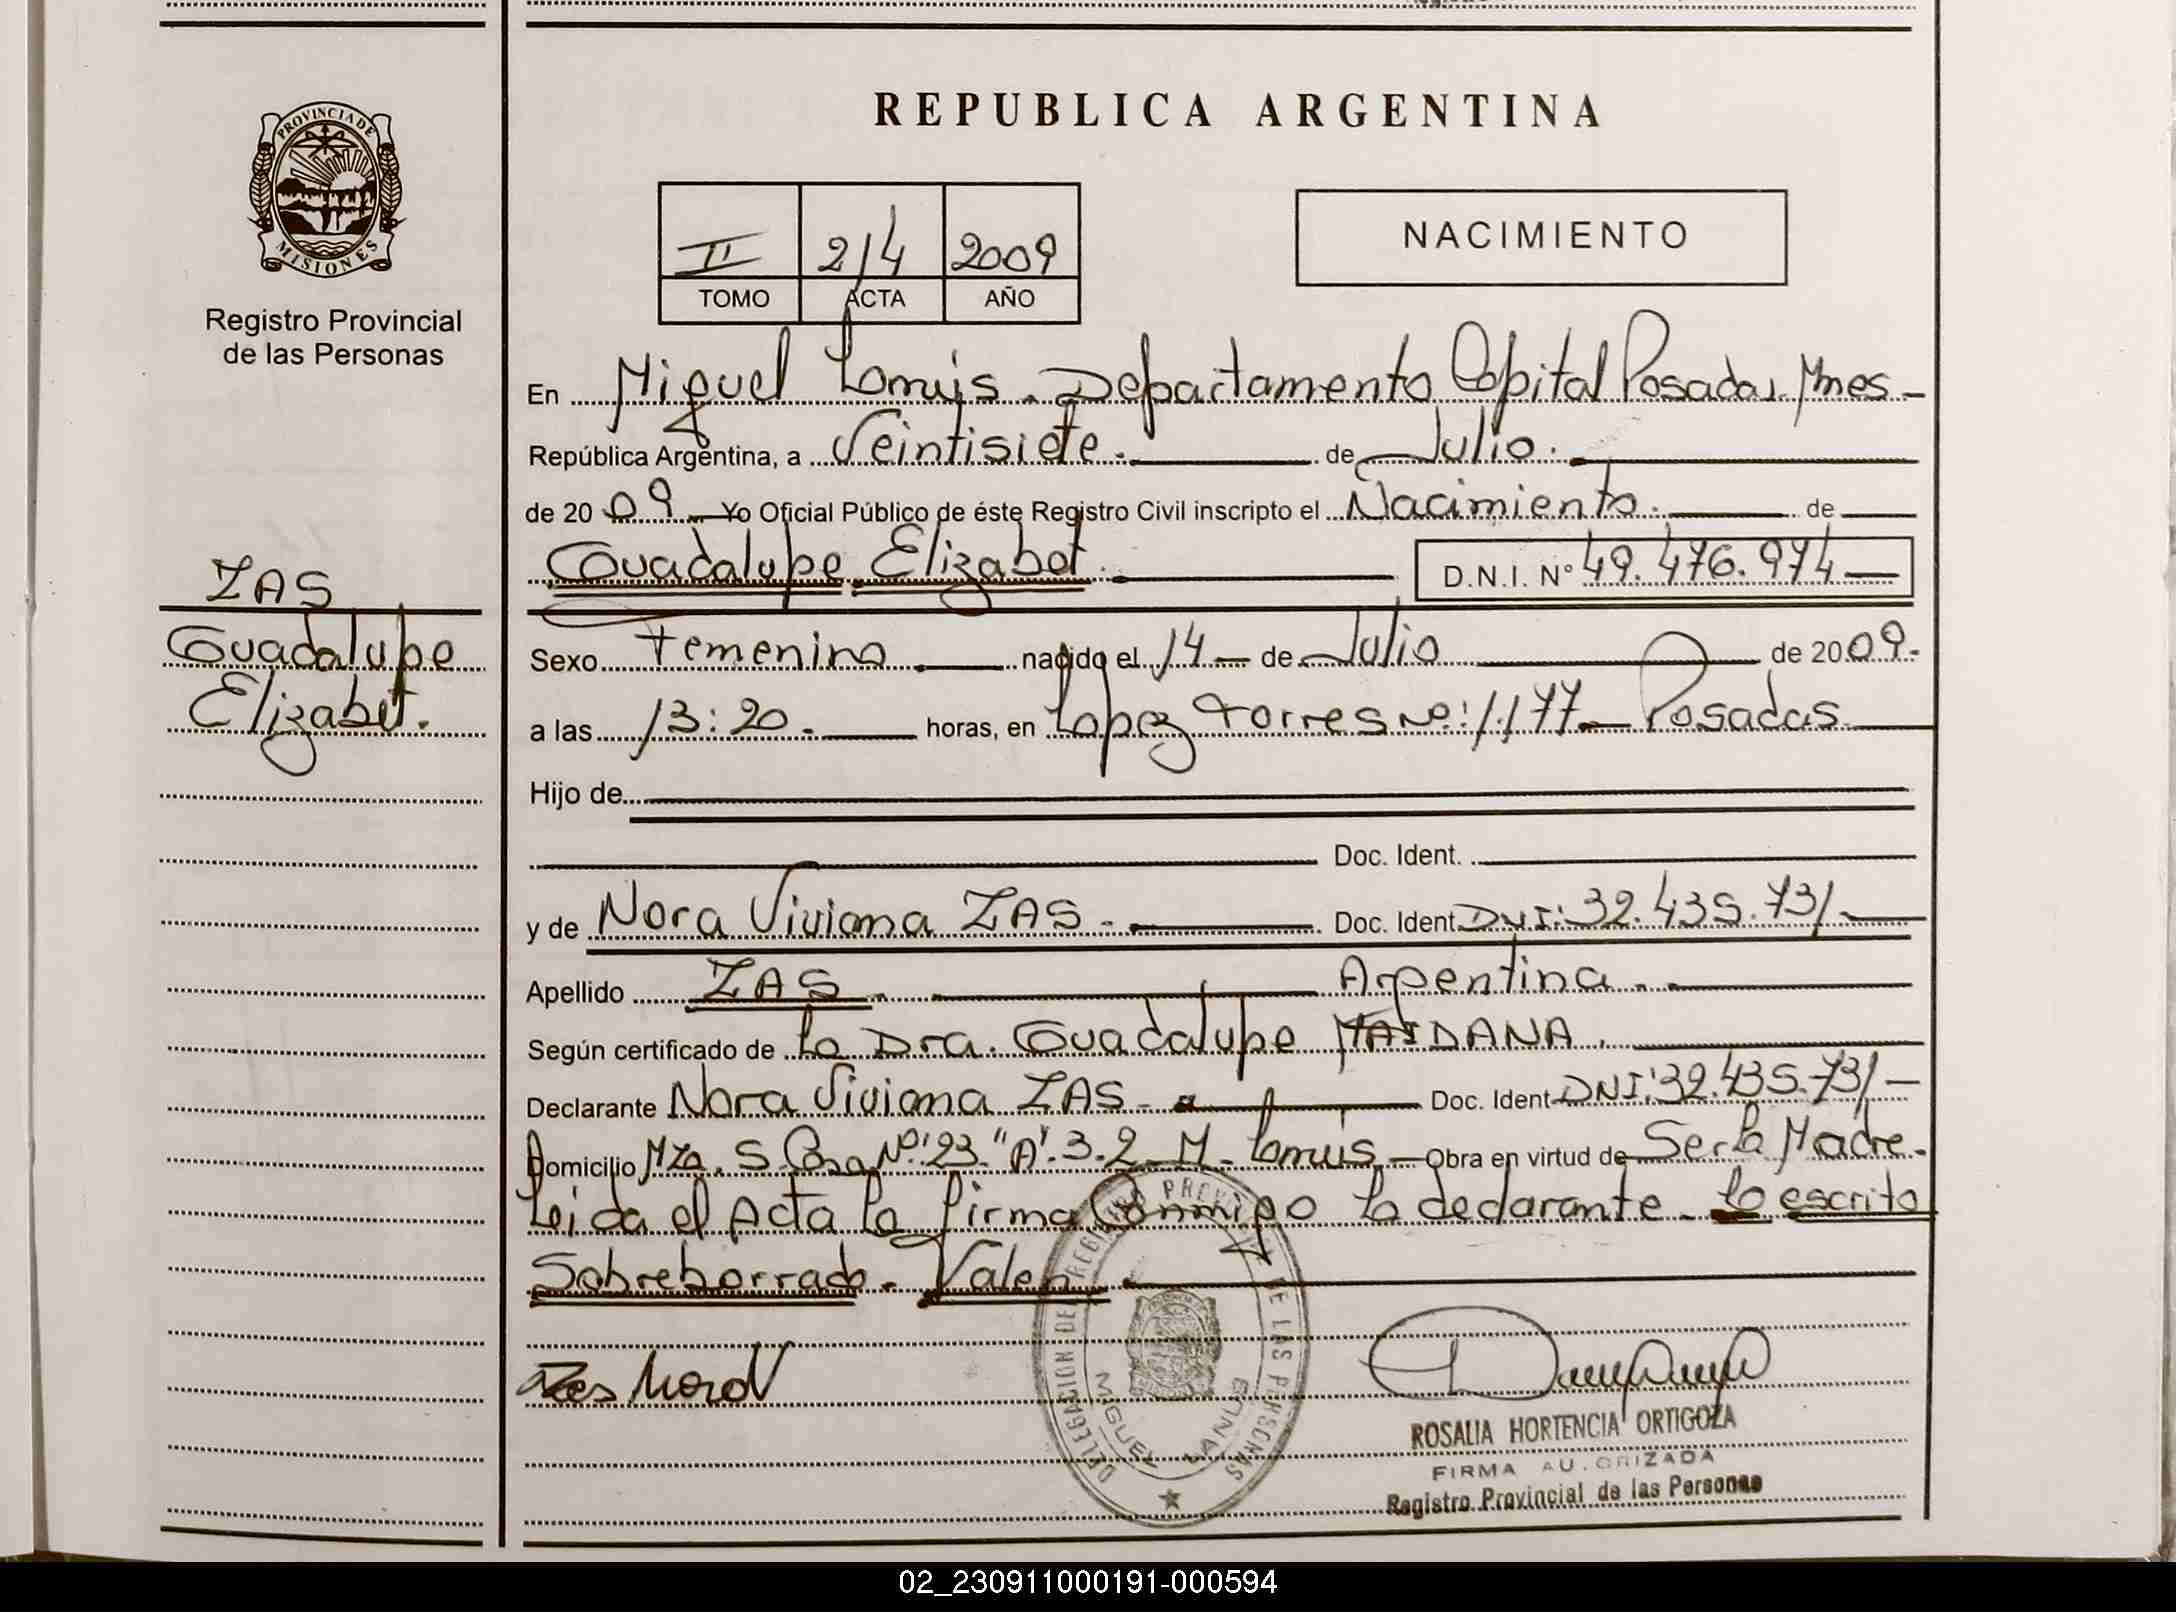 REPUBLICA ARGENTINA
PROVINCIA DE
MISIONES
Registro Provincial
de las Personas
II 214 2009
TOMO ACTA AÑO
NACIMIENTO
En Miguel Lanus. Departamento Capital Posadas, Mnes -
República Argentina, a Veintisiete. de Julio.
de 2009. Yo Oficial Público de éste Registro Civil inscripto el Nacimiento. de
Guadalupe Elizabet. D.N.I. N° 49.476.974
ZAS
Guadalupe
Elizabet.
Sexo Femenino. nacido el 14 - de Julio de 2009.
a las 13:20. horas, en Lopez Torres Nº: 1.177 Posadas
Hijo de
Doc. Ident.
y de Nora Viviana ZAS. Doc. Ident DNI: 32.435.731
Apellido ZAS. Argentina.
Según certificado de La Dra. Guadalupe MAIDANA.
Declarante Nora Viviana ZAS - Doc. Ident DNI: 32.435.731 -
Domicilio Mza. S Casa Nº: 23 "A". 3.2 M. Lanus - Obra en virtud de Ser La Madre.
Leida el Acta La firma Conmigo La declarante. Lo escrito
Sobreborrado. Valen
DELEGACION DEL REGISTRO PROVINCIAL DE LAS PERSONAS
MIGUEL LANUS
ROSALIA HORTENCIA ORTIGOZA
FIRMA AUTORIZADA
Registro Provincial de las Personas
02_230911000191-000594